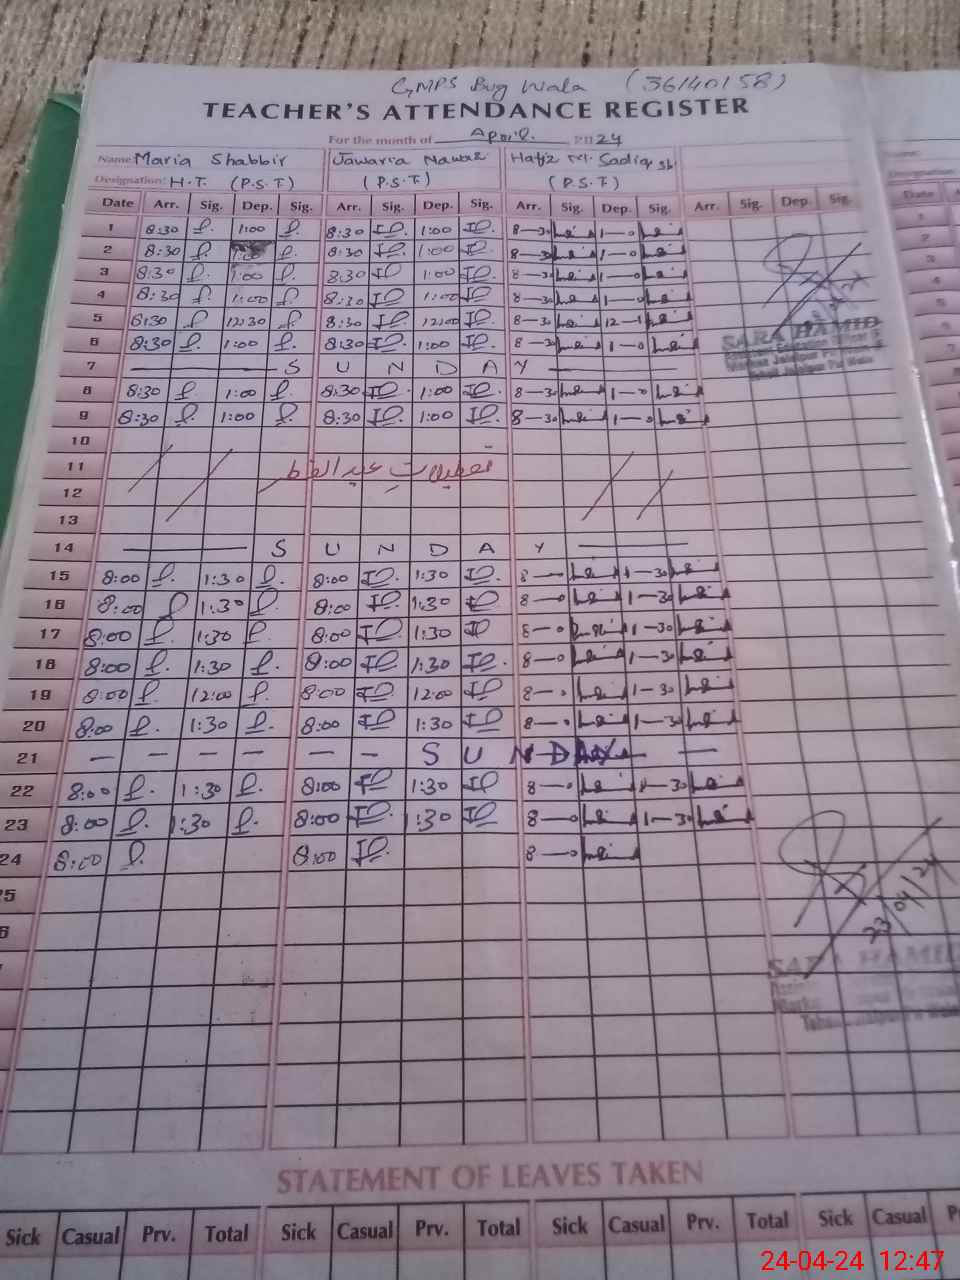 GMPS Bug Wala (36140158)
TEACHER'S ATTENDANCE REGISTER
For the month of April 2024
Name: Maria Shabbir Jawaria Nawaz Hafiz M. Sadiq sb
Designation: H.T. (P.S.T) (P.S.T) (P.S.T)
Date Arr. Sig. Dep. Sig. Arr. Sig. Dep. Sig. Arr. Sig. Dep. Sig. Arr. Sig. Dep. Sig. Date
1 8:30 1:00 8:30 1:00 8-30 1-0
2 8:30 1:00 8:30 1:00 8-30 1-0
3 8:30 1:00 8:30 1:00 8-30 1-0
4 8:30 1:00 8:30 1:00 8-30 1-0
5 8:30 12:30 8:30 12:00 8-30
6 8:30 1:00 8:30 1:00 8-30 1-0
SARA HAMID
7 SUNDAY
8 8:30 1:00 8:30 1:00 8-30 1-0
9 8:30 1:00 8:30 1:00 8-30 1-0
10
11 تعطیلات عید الفطر
12
13
14 SUNDAY
15 8:00 1:30 8:00 1:30 8-0 1-30
16 8:00 1:30 8:00 1:30 8-0 1-30
17 8:00 1:30 8:00 1:30 8-0 1-30
18 8:00 1:30 8:00 1:30 8-0 1-30
19 8:00 12:00 8:00 12:00 8-0 1-30
20 8:00 1:30 8:00 1:30 8-0 1-30
21 SUNDAY
22 8:00 1:30 8:00 1:30 8-0 1-30
23 8:00 1:30 8:00 1:30 8-0 1-30
24 8:00 8:00 8-0
23/04/24
SARA HAMID
STATEMENT OF LEAVES TAKEN
Sick Casual Prv. Total Sick Casual Prv. Total Sick Casual Prv. Total Sick Casual
24-04-24 12:47